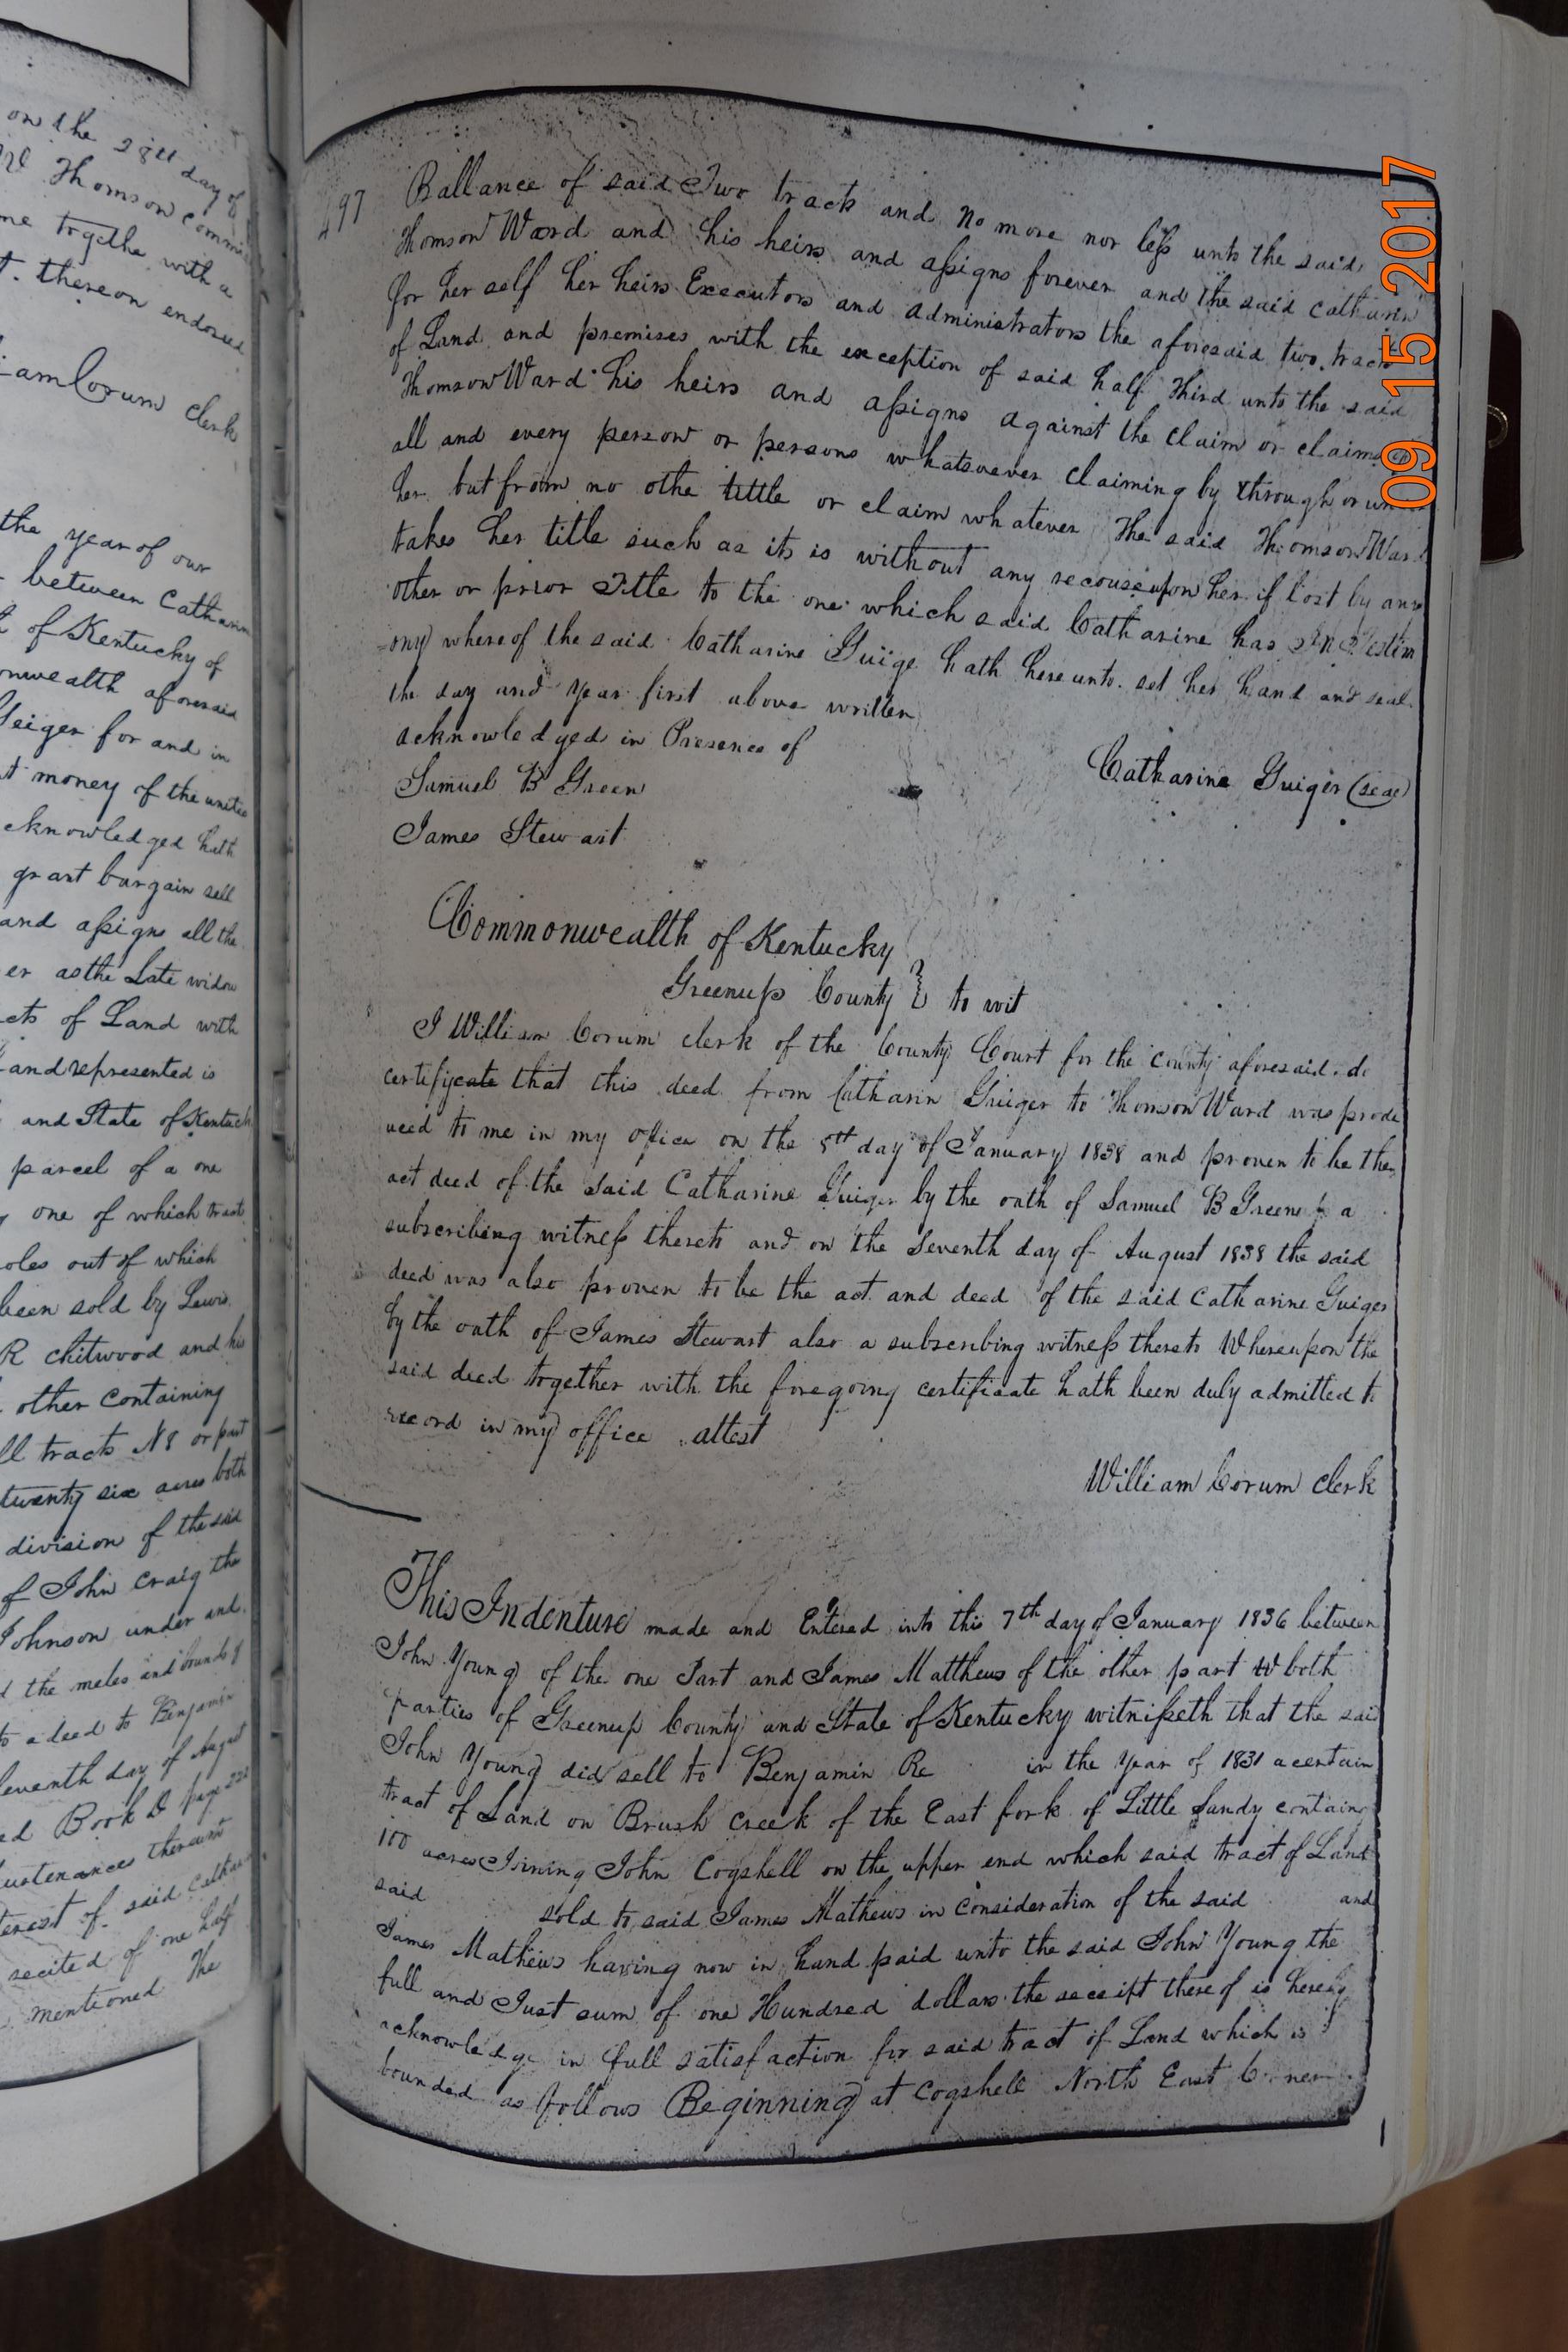 on the 28th day of
Thomson commis
me togethe with a
t. thereon endorsed
iam Corum clerk
the year of our
between Catharin
of Kentucky of
onwealth aforesaid
Geiger for and in
t money of the united
cknowledged hath
grant bargain sell
and assigns all the
er as the Late widow
cts of Land with
and represented is
and State of Kentuck
parcel of a one
one of which tract
oles out of which
been sold by Lewis
R chitwood and his
other containing
ll tracts No 8 or part
twenty six acres both
division of the said
of John Craig the
Johnson under and
d the metes and bounds of
to a deed to Benjamin
Seventh day of August
ed Book D page 222
urtenances thereunto
terest of said Cathar
recited of one half
mentioned The
497
Ballance of said Two tracts and no more nor less unto the said
Thomson Ward and his heirs and assigns forever and the said catharin
for her self her heirs Executors and administrators the aforesaid two tracts
of Land and premises with the exception of said half third unto the said
Thomson Ward his heirs and assigns against the claim or claims of
all and every person or persons whatsoever claiming by through or un
her but from no othe tittle or claim whatever The said Thomson Ward
takes her title such as its is without any recouse upon her if lost by any
other or prior Title to the one which said Catharine has In Testim
ony whereof the said Catharine Guige hath hereunto set her hand and seal
the day and year first above written
acknowledged in Presence of
Catharine Guiger (seal)
Samuel B Green
James Stewart
Commonwealth of Kentucky
Greenup County } to wit
I William Corum clerk of the County Court for the county aforesaid do
certifycate that this deed from Catharin Guiger to Thomson Ward was produ
uced to me in my office on the 5th day of January 1838 and proven to be the
act deed of the said Catharine Guiger by the oath of Samuel B Green a
subscribing witness thereto and on the Seventh day of August 1838 the said
deed was also proven to be the act and deed of the said Catharine Guiger
by the oath of James Stewart also a subscribing witness thereto Whereupon the
said deed together with the foregoing certificate hath been duly admitted to
record in my office attest
William Corum Clerk
This Indenture made and Entered into this 7th day of January 1836 between
John Young of the one Part and James Matthews of the other part both
parties of Greenup County and State of Kentucky witnesseth that the said
John Young did sell to Benjamin Re in the Year of 1831 a certain
tract of Land on Brush Creek of the East fork of Little Sandy containg
100 acres Joining John Cogshell on the upper end which said tract of Land
said sold to said James Mathews in consideration of the said and
James Mathews having now in hand paid unto the said John Young the
full and Just sum of one Hundred dollars the receipt there of is hereby
acknowledge in full satisfaction for said tract of Land which is
bounded as follows Beginning at Cogshell North East Corner
09 15 2017